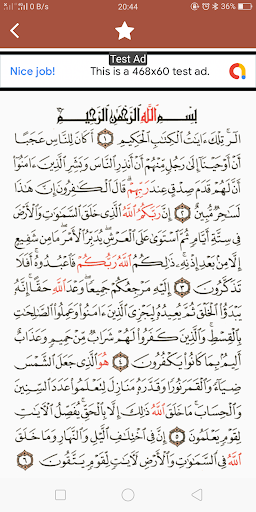 20:44
11.9 B/s
Test Ad
Nice job!
This is a 468x60 test ad.
بِسْمِ ٱللَّهِ ٱلرَّحْمَٰنِ ٱلرَّحِيمِ
الٓر ۚ تِلْكَ ءَايَٰتُ ٱلْكِتَٰبِ ٱلْحَكِيمِ ١ أَكَانَ لِلنَّاسِ عَجَبًا
أَنْ أَوْحَيْنَآ إِلَىٰ رَجُلٍ مِّنْهُمْ أَنْ أَنذِرِ ٱلنَّاسَ وَبَشِّرِ ٱلَّذِينَ ءَامَنُوٓا۟
أَنَّ لَهُمْ قَدَمَ صِدْقٍ عِندَ رَبِّهِمْ ۗ قَالَ ٱلْكَٰفِرُونَ إِنَّ هَٰذَا
لَسَٰحِرٌ مُّبِينٌ ٢ إِنَّ رَبَّكُمُ ٱللَّهُ ٱلَّذِى خَلَقَ ٱلسَّمَٰوَٰتِ وَٱلْأَرْضَ
فِى سِتَّةِ أَيَّامٍ ثُمَّ ٱسْتَوَىٰ عَلَى ٱلْعَرْشِ ۖ يُدَبِّرُ ٱلْأَمْرَ ۖ مَا مِن شَفِيعٍ
إِلَّا مِنۢ بَعْدِ إِذْنِهِۦ ۚ ذَٰلِكُمُ ٱللَّهُ رَبُّكُمْ فَٱعْبُدُوهُ ۚ أَفَلَا
تَذَكَّرُونَ ٣ إِلَيْهِ مَرْجِعُكُمْ جَمِيعًا ۖ وَعْدَ ٱللَّهِ حَقًّا ۚ إِنَّهُۥ
يَبْدَؤُا۟ ٱلْخَلْقَ ثُمَّ يُعِيدُهُۥ لِيَجْزِىَ ٱلَّذِينَ ءَامَنُوا۟ وَعَمِلُوا۟ ٱلصَّٰلِحَٰتِ
بِٱلْقِسْطِ ۚ وَٱلَّذِينَ كَفَرُوا۟ لَهُمْ شَرَابٌ مِّنْ حَمِيمٍ وَعَذَابٌ
أَلِيمٌۢ بِمَا كَانُوا۟ يَكْفُرُونَ ٤ هُوَ ٱلَّذِى جَعَلَ ٱلشَّمْسَ
ضِيَآءً وَٱلْقَمَرَ نُورًا وَقَدَّرَهُۥ مَنَازِلَ لِتَعْلَمُوا۟ عَدَدَ ٱلسِّنِينَ
وَٱلْحِسَابَ ۚ مَا خَلَقَ ٱللَّهُ ذَٰلِكَ إِلَّا بِٱلْحَقِّ ۚ يُفَصِّلُ ٱلْءَايَٰتِ
لِقَوْمٍ يَعْلَمُونَ ٥ إِنَّ فِى ٱخْتِلَٰفِ ٱلَّيْلِ وَٱلنَّهَارِ وَمَا خَلَقَ
ٱللَّهُ فِى ٱلسَّمَٰوَٰتِ وَٱلْأَرْضِ لَءَايَٰتٍ لِّقَوْمٍ يَتَّقُونَ ٦